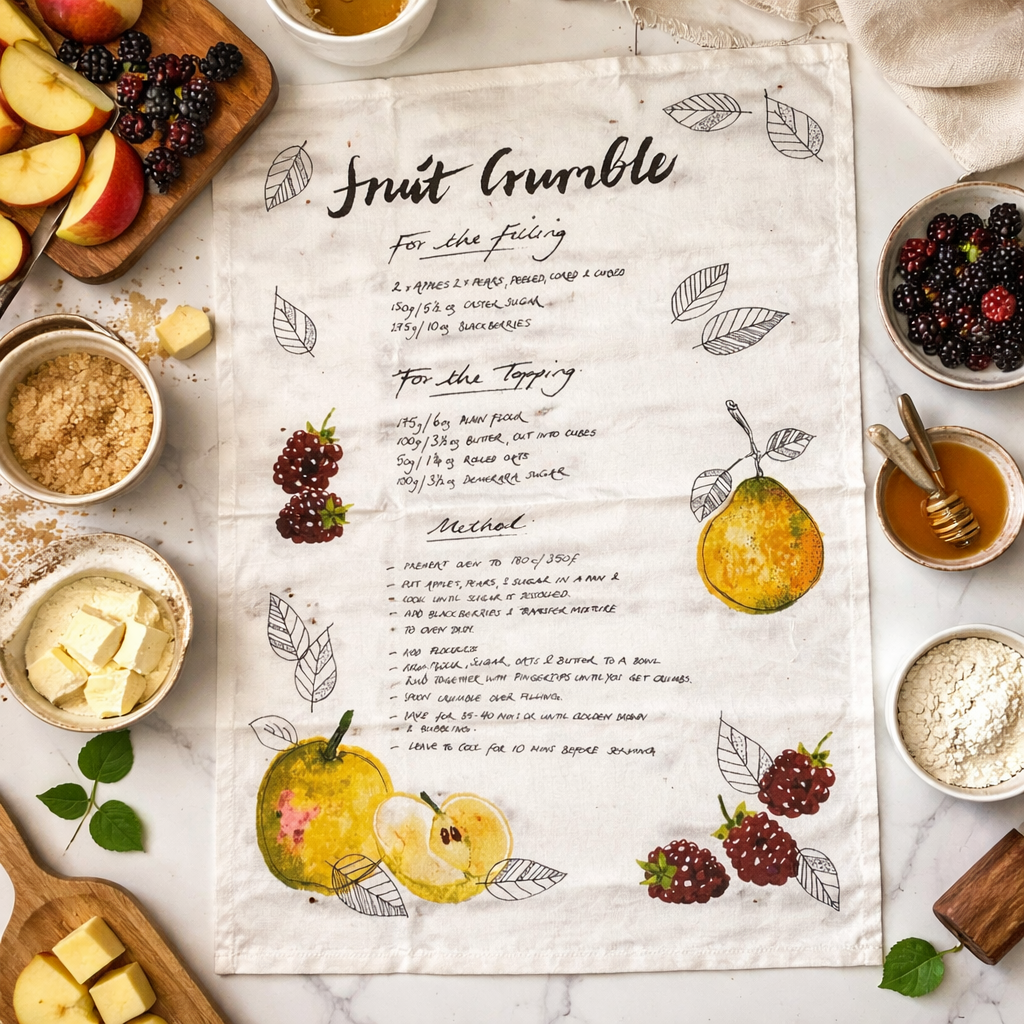 Fruit Crumble
For the Filling
2 x APPLES 2 x PEARS, PEELED, CORED & CUBED
150g/5½ oz CASTER SUGAR
275g/10 oz BLACKBERRIES
For the Topping
175g/6oz PLAIN FLOUR
100g/3½ oz BUTTER, CUT INTO CUBES
50g/1¾ oz ROLLED OATS
100g/3½ oz DEMERARA SUGAR
Method
- PREHEAT OVEN TO 180c/350F
- PUT APPLES, PEARS, & SUGAR IN A PAN &
- COOK UNTIL SUGAR IS DISSOLVED.
- ADD BLACKBERRIES & TRANSFER MIXTURE
- TO OVEN DISH.
- ADD
- FLOUR, SUGAR, OATS & BUTTER TO A BOWL
RUB TOGETHER WITH FINGERTIPS UNTIL YOU GET CRUMBS.
- SPOON CRUMBLE OVER FILLING.
- FOR 35-40 MINS OR UNTIL GOLDEN BROWN
- & BUBBLING.
- LEAVE TO COOL FOR 10 MINS BEFORE SERVING